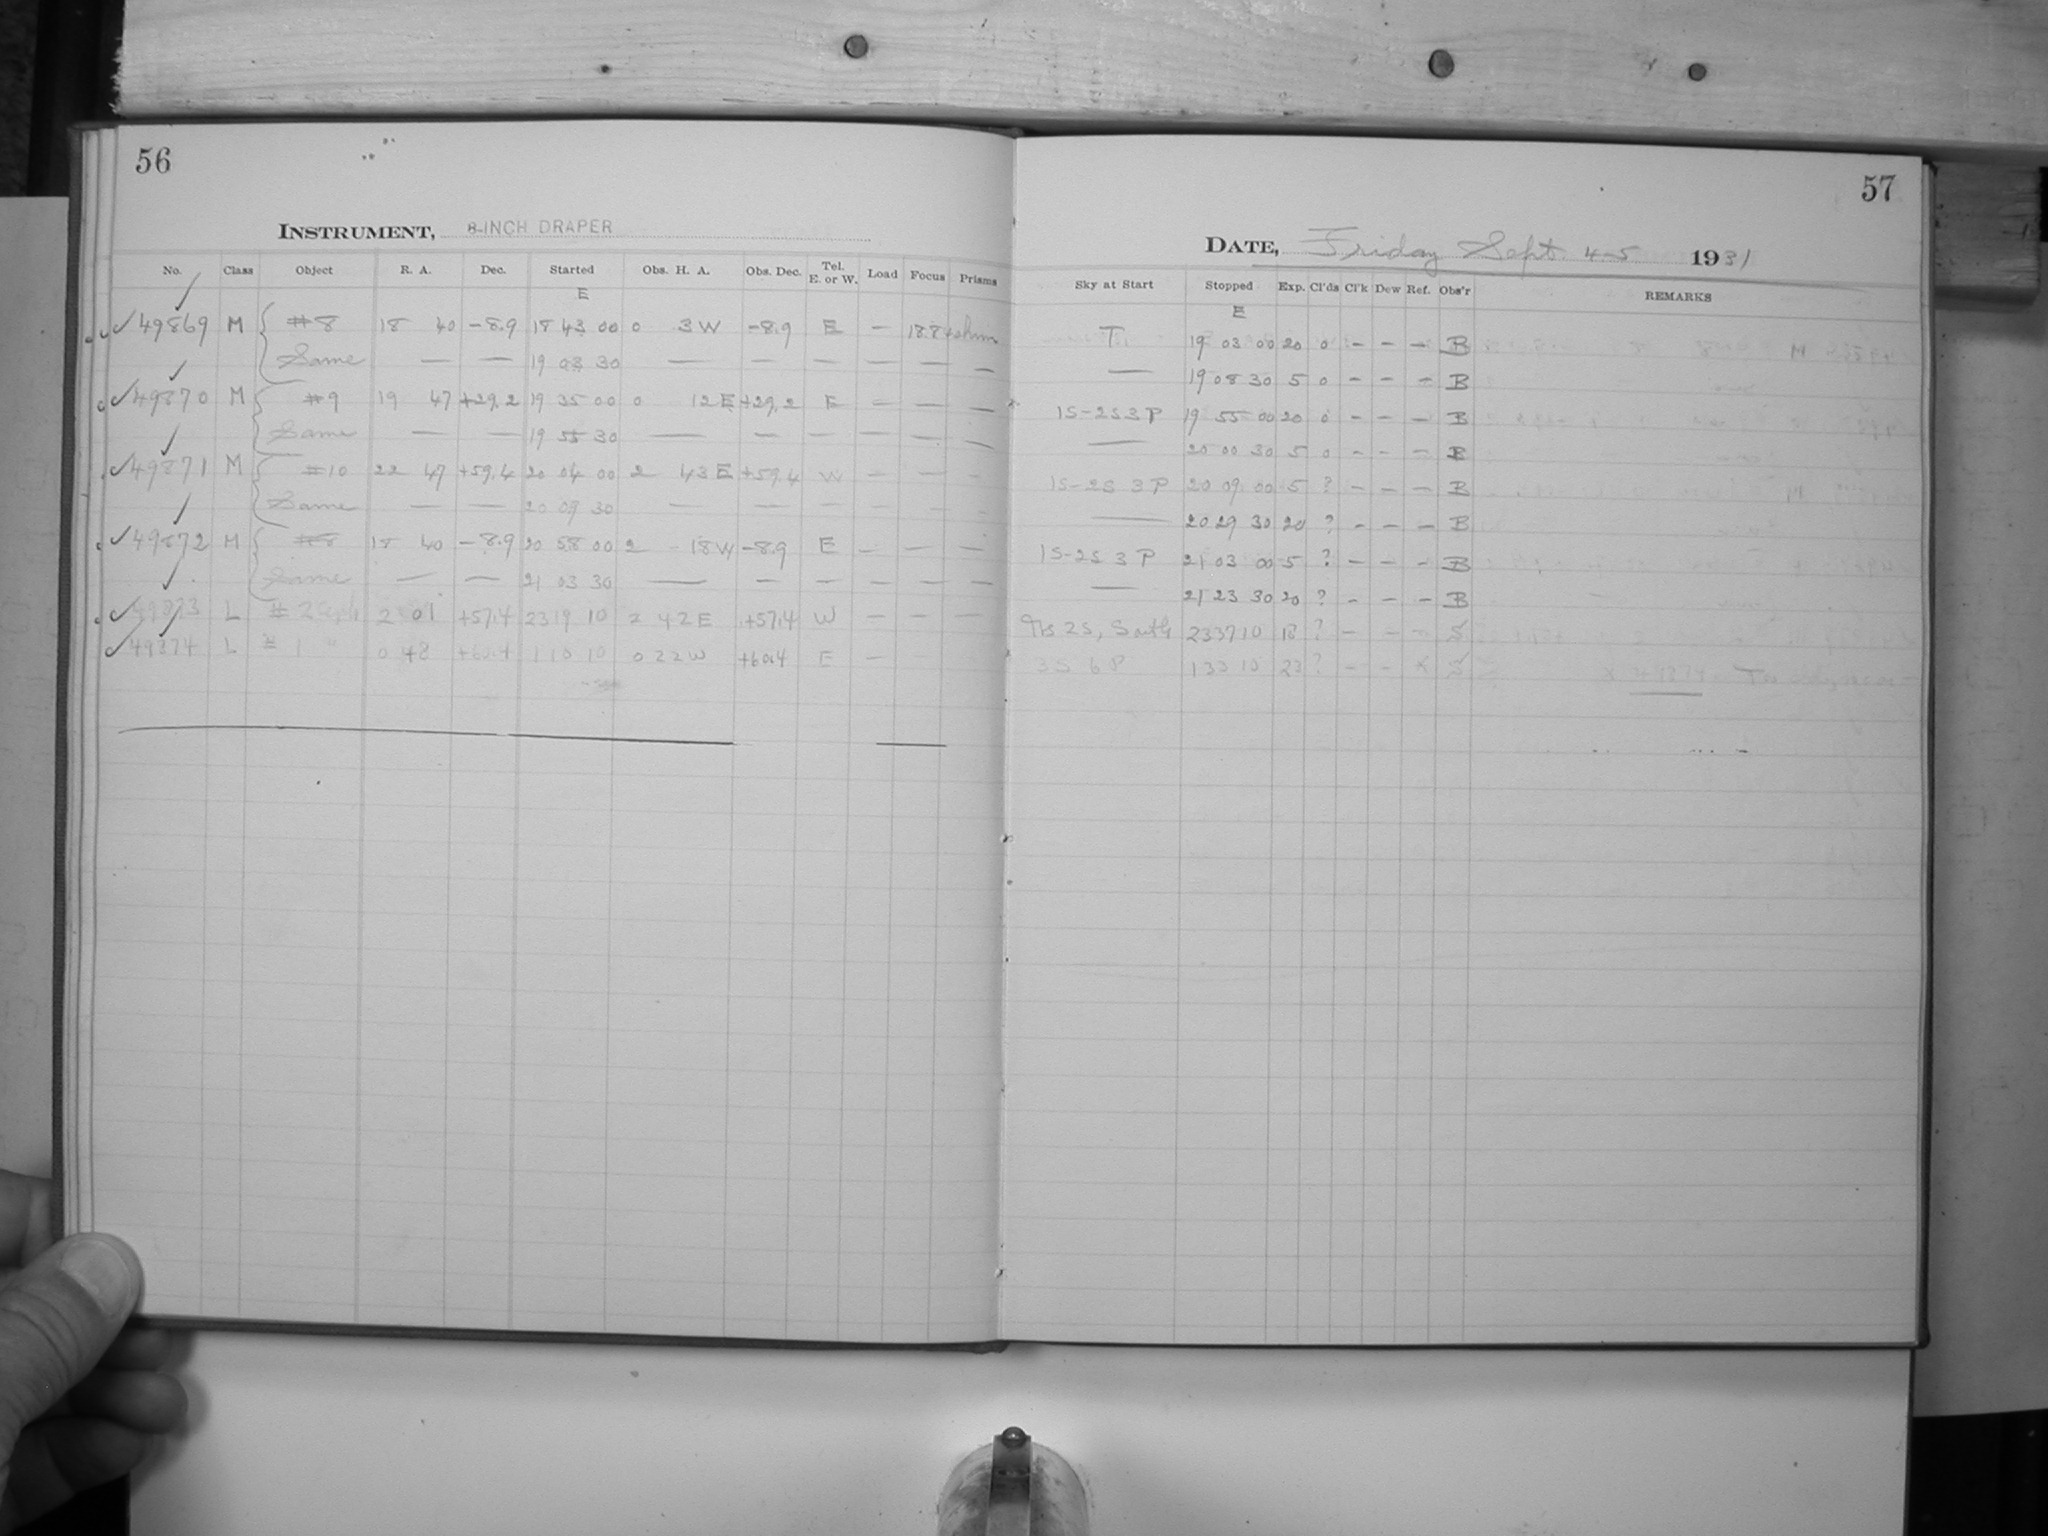 56
INSTRUMENT, 8-INCH DRAPER
No. Class Object R. A. Dec. Started Obs. H. A. Obs. Dec. Tel. E. or W. Load Focus Prisms
E
49869 M #8 18 40 -8.9 18 43 00 0 3 W -8.9 E — 18.8
Same — — 19 03 30 — — — — — —
49870 M #9 19 47 +29.2 19 35 00 0 12 E +29.2 E — — —
Same — — 19 55 30 — — — — — —
49871 M #10 22 47 +59.4 20 04 00 2 43 E +59.4 W — — —
Same — — 20 09 30 — — — — — —
49872 M #8 18 40 -8.9 20 58 00 2 18 W -8.9 E — — —
Same — — 21 03 30 — — — — — —
49873 L # 2 2 01 +57.4 23 19 10 2 42 E +57.4 W — — —
49874 L # 1 " 0 48 +60.4 1 10 10 0 22 W +60.4 E —
57
DATE, Friday Sept. 4-5 1931
Sky at Start Stopped Exp. Cl'ds Cl'k Dew Ref. Obs'r REMARKS
E
T 19 03 00 20 0 - - - B
— 19 08 30 5 0 - - - B
1S-2S 3 P 19 55 00 20 0 - - - B
— 20 00 30 5 0 - - - B
1S-2S 3 P 20 09 00 5 ? - - - B
— 20 29 30 20 ? - - - B
1S-2S 3 P 21 03 00 5 ? - - - B
— 21 23 30 20 ? - - - B
2S, South 23 37 10 18 ? - - - S
3S 6 P 1 33 10 23 ? - - x S x 49874